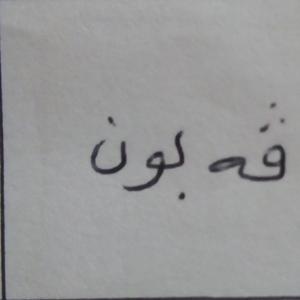 ڤه بون